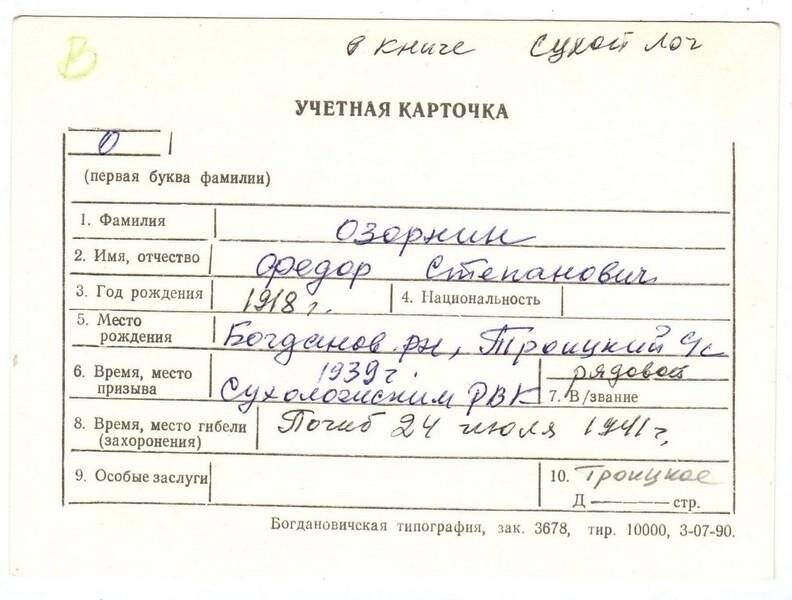 В
в книге Сухой Лог
УЧЕТНАЯ КАРТОЧКА
О
(первая буква фамилии)
1. Фамилия Озорнин
2. Имя, отчество Федор Степанович
3. Год рождения 1918 г. 4. Национальность
5. Место рождения Богданов. рн, Троицкий с/с
6. Время, место призыва 1939 г. Сухоложским РВК
рядовой
7. В/звание
8. Время, место гибели (захоронения) Погиб 24 июля 1941 г.
9. Особые заслуги
10. Троицкое
Д ——— стр.
Богдановичская типография, зак. 3678, тир. 10000, 3-07-90.